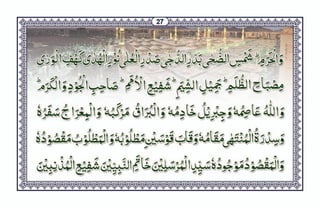 27
وَالْحَرَمِ ؕ شَمْسِ الضُّحٰى بَدْرِ الدُّجٰى صَدْرِ الْعُلٰى نُوْرِ الْهُدٰى كَهْفِ الْوَرٰى
مِصْبَاحِ الظُّلَمِ ؕ جَمِيْلِ الشِّيَمِ ؕ شَفِيْعِ الْاُمَمِ ؕ صَاحِبِ الْجُوْدِ وَالْكَرَمِ ؕ
وَاللّٰهُ عَاصِمُهٗ وَجِبْرِيْلُ خَادِمُهٗ وَالْبُرَاقُ مَرْكَبُهٗ وَالْمِعْرَاجُ سَفَرُهٗ
وَسِدْرَةُ الْمُنْتَهٰى مَقَامُهٗ وَقَابَ قَوْسَيْنِ مَطْلُوْبُهٗ وَالْمَطْلُوْبُ مَقْصُوْدُهٗ
وَالْمَقْصُوْدُ مَوْجُوْدُهٗ سَيِّدِ الْمُرْسَلِيْنَ خَاتَمِ النَّبِيِّيْنَ شَفِيْعِ الْمُذْنِبِيْنَ